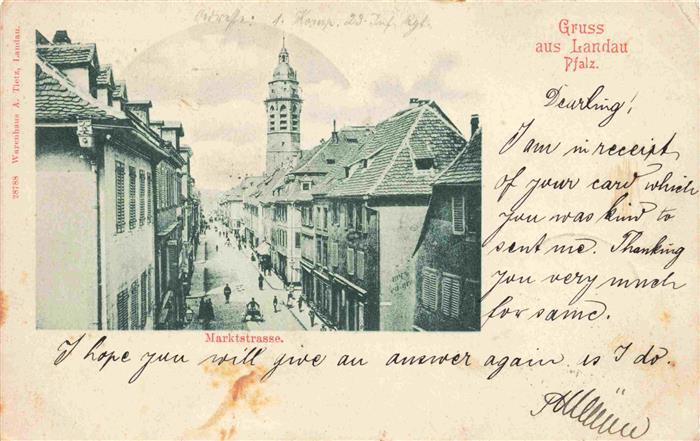 Adresse: 1. Komp. 23. Inf. Rgt.
Gruss
aus Landau
Pfalz.
28788 Warenhaus A. Tietz, Landau.
Dearling!
I am in receipt
of your card which
you was kind to
sent me. Thanking
you very much
for same.
Marktstrasse.
I hope you will give an answer again as I do.